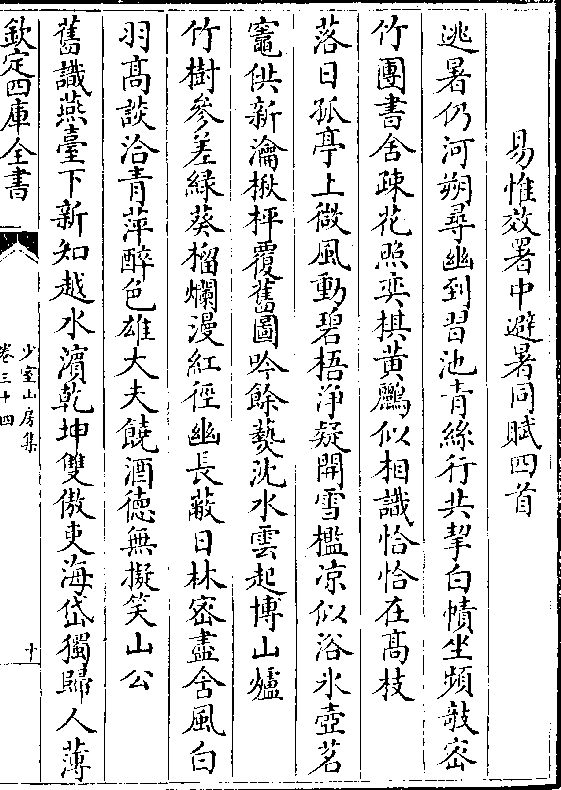 易惟效署中避暑同賦四首
逃暑仍河朔尋幽到習池青絲行共挈白幘坐頻敧密
竹團書舍疎花照奕棋黃鸝似相識恰恰在高枝
落日孤亭上微風動碧梧淨疑開雪檻凉似浴氷壺茗
竈供新瀹楸枰覆舊圖吟餘爇沈水雲起博山爐
竹樹參差緑葵榴爛漫紅徑幽長蔽日林密盡含風白
羽高談洽青萍醉色雄大夫饒酒德無擬笑山公
舊識燕臺下新知越水濵乾坤雙傲吏海岱獨歸人薄
欽定四庫全書
少室山房集
卷三十四
十